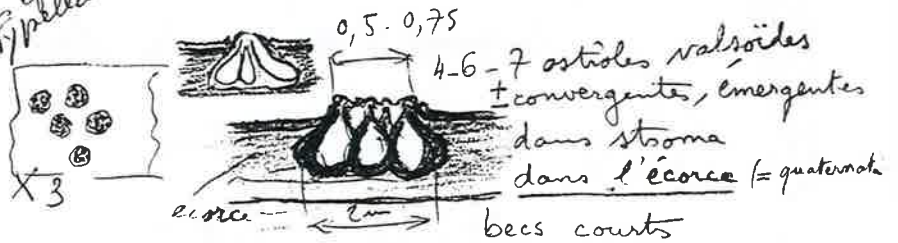 0,5 - 0,75
4-6-7 ostioles valsoïdes
± convergentes, émergentes
dans stroma
dans l'écorce (= quaternata
X 3
ecorce
2 mm
becs courts